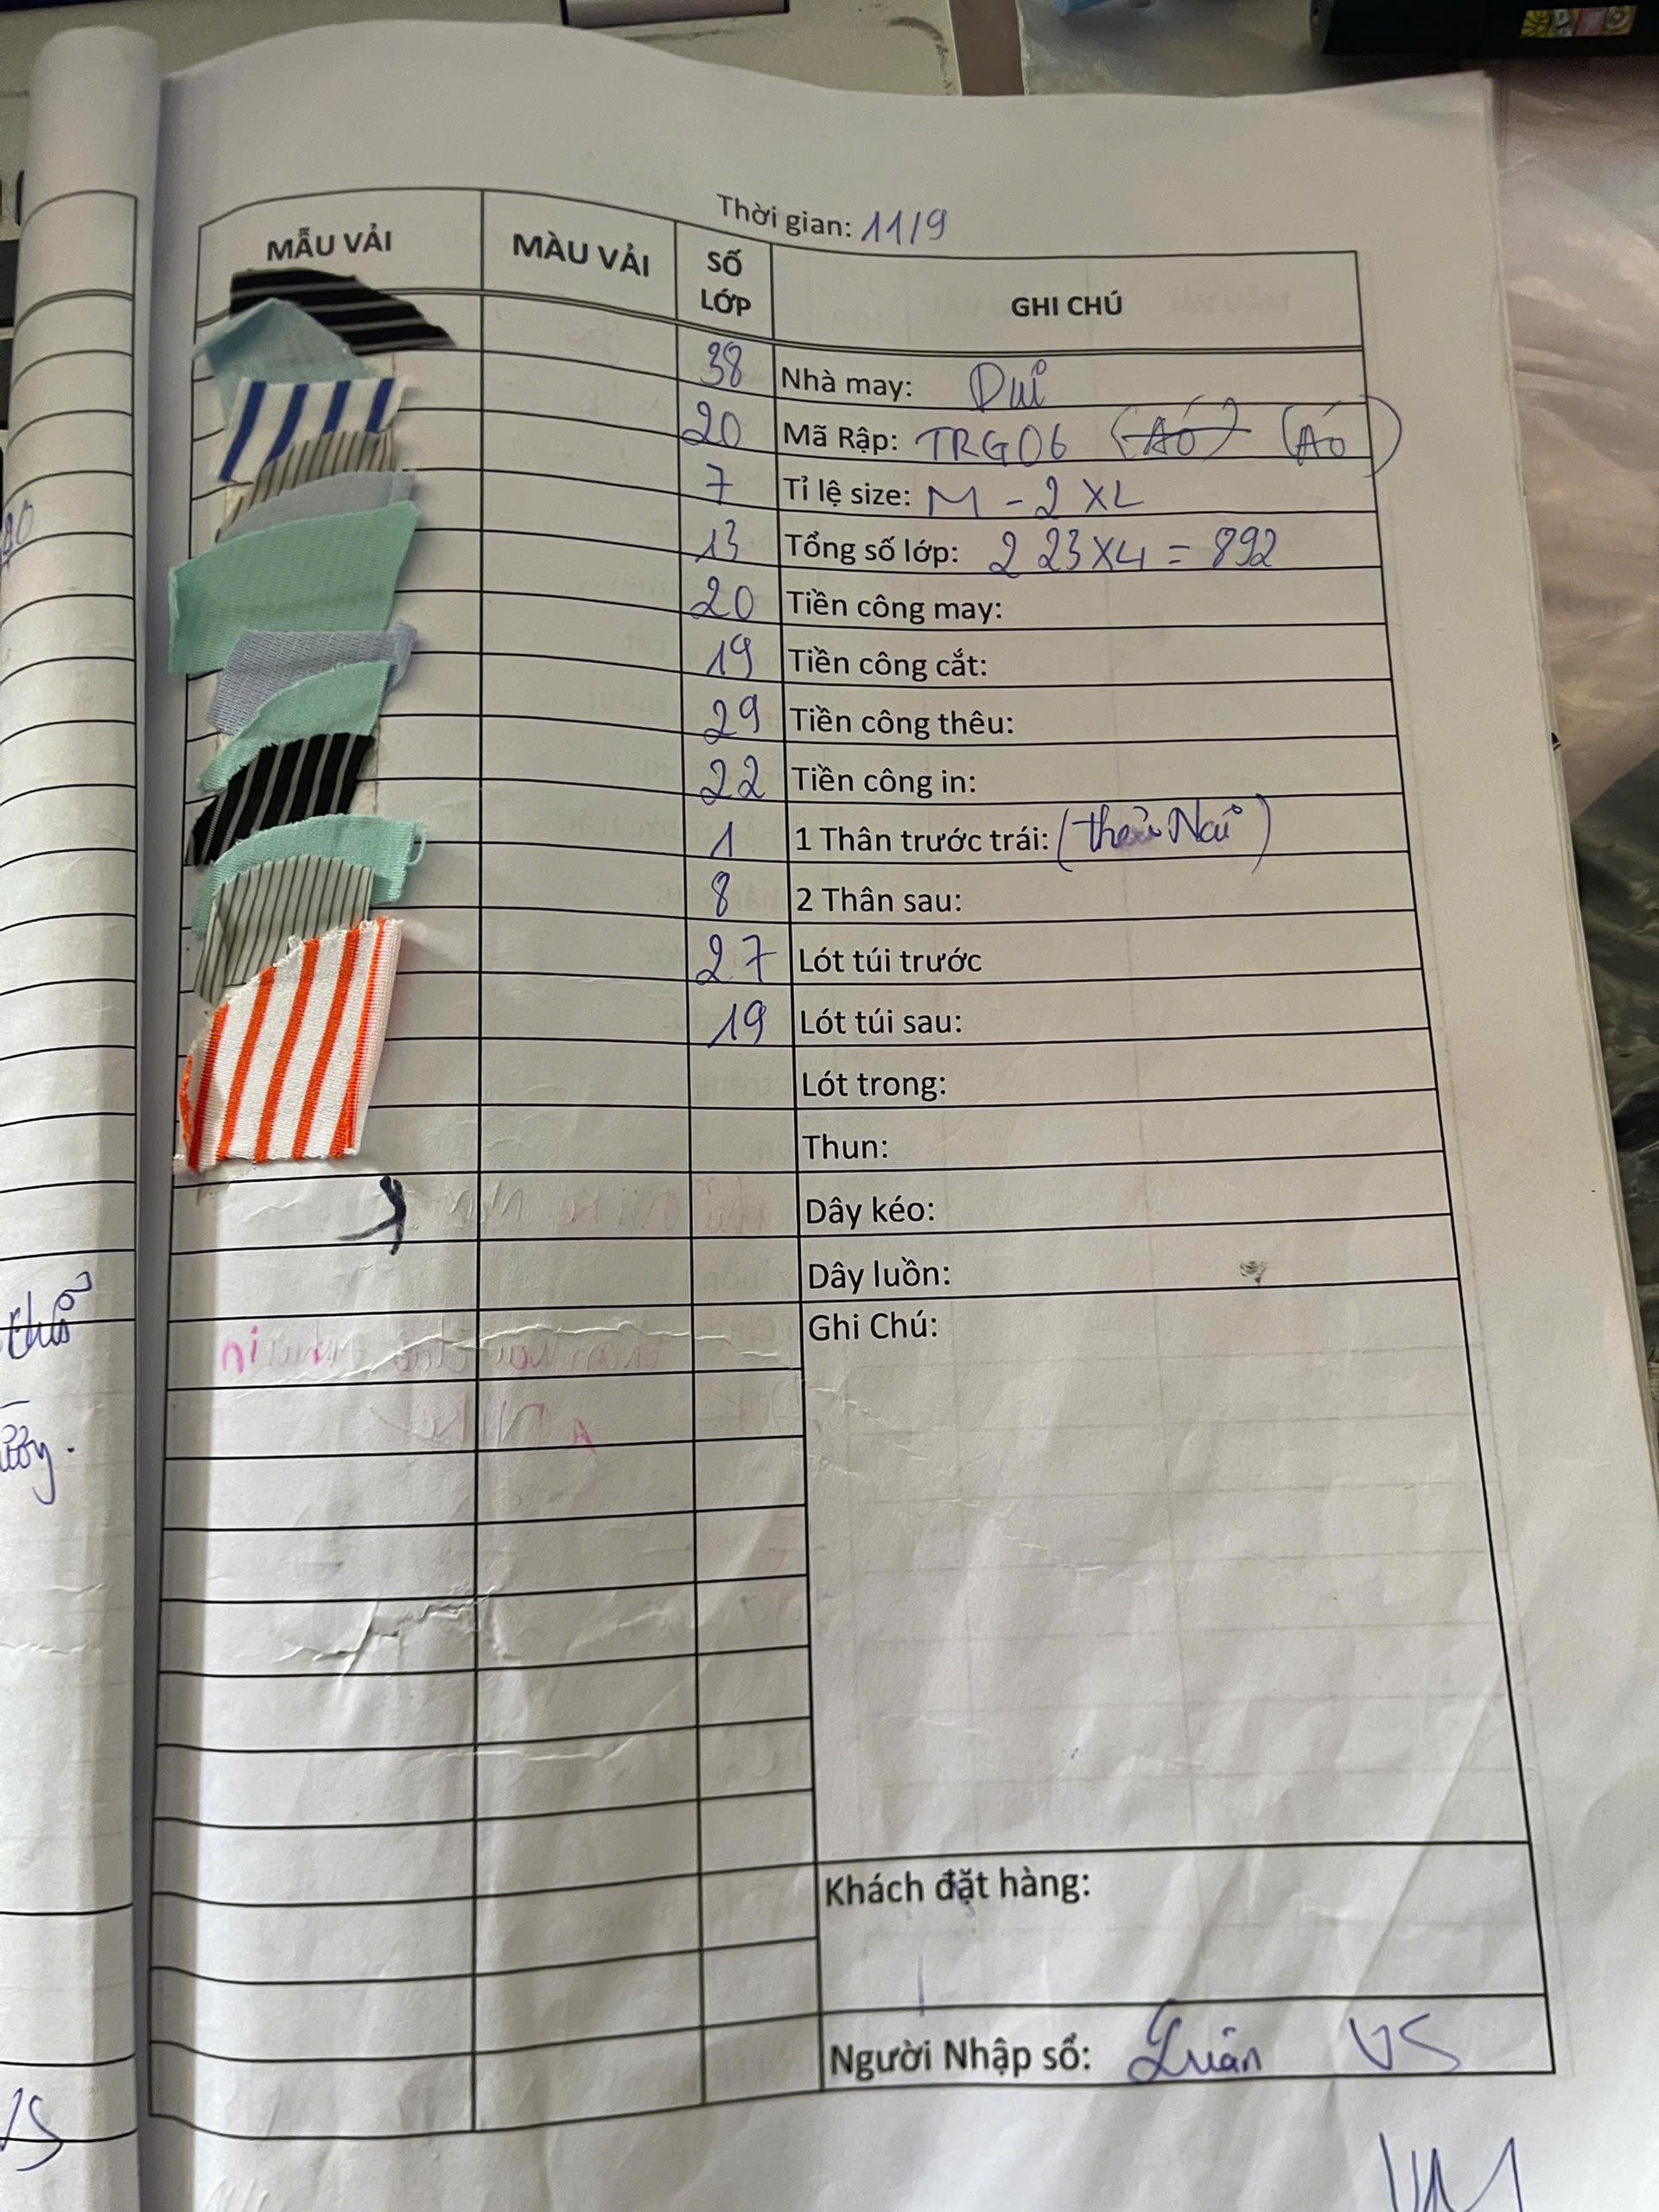 Thời gian: 11/9
MẪU VẢI MÀU VẢI SỐ LỚP GHI CHÚ
38 Nhà may: Dui
20 Mã Rập: TRG06 (Áo) (Áo)
7 Tỉ lệ size: M - 2XL
13 Tổng số lớp: 223x4 = 892
20 Tiền công may:
19 Tiền công cắt:
29 Tiền công thêu:
22 Tiền công in:
1 1 Thân trước trái:
8 2 Thân sau:
27 Lót túi trước
19 Lót túi sau:
Lót trong:
Thun:
Dây kéo:
Dây luồn:
Ghi Chú:
Khách đặt hàng:
Người Nhập sổ: VS